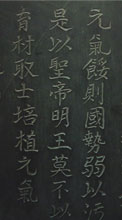 元氣餒則國勢弱以污
是以聖帝明王莫不以
育材取士培植元氣